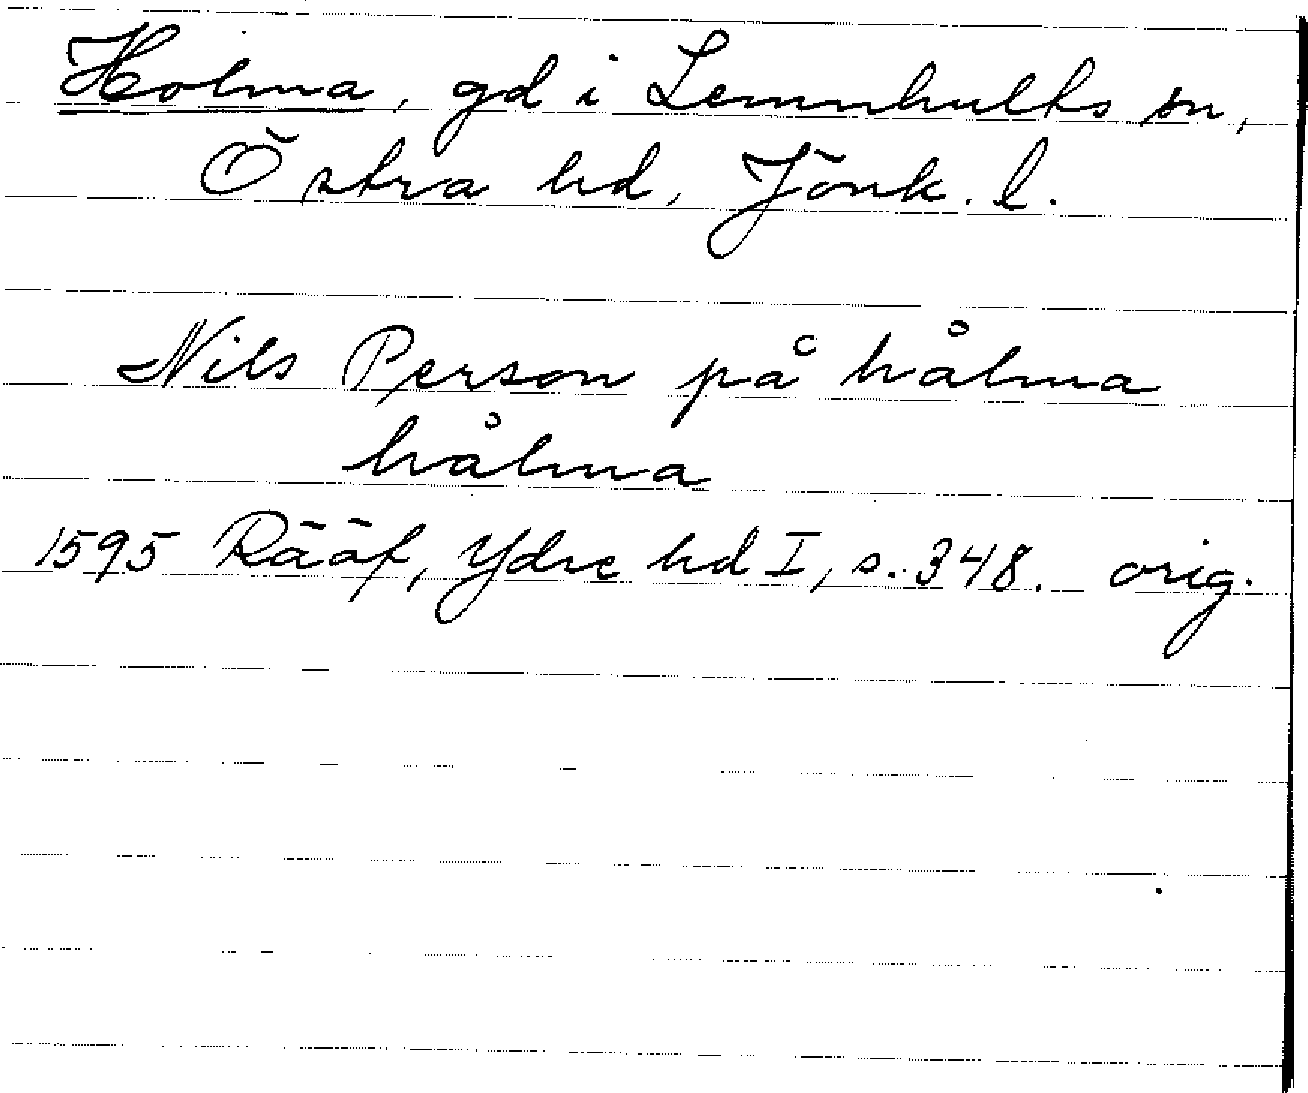 Holma, gd i Lemnhults sn,
Östra hd, Jönk. l.
Nils Person på hålma
hålma
1595 Rääf, Ydre hd I, s. 348. orig.